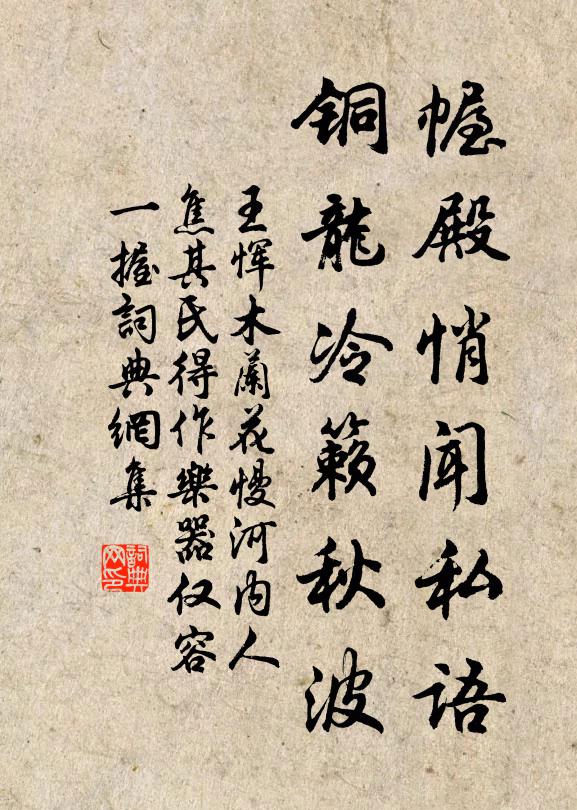 幄殿悄闻私語
铜龍冷籁秋波
王恽木蘭花慢河内人
焦其民得作樂器仅容
一握詞典網集
詞典网印